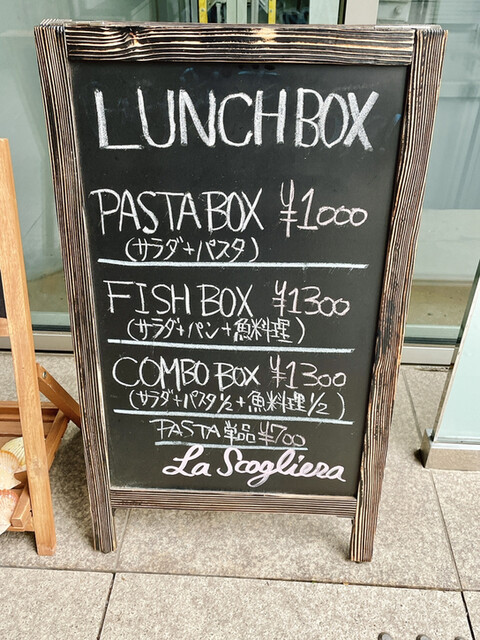 LUNCH BOX
PASTA BOX ¥1000
(サラダ+パスタ)
FISH BOX ¥1300
(サラダ+パン+魚料理)
COMBO BOX ¥1300
(サラダ+パスタ1/2+魚料理1/2)
PASTA単品¥700
La Scogliera